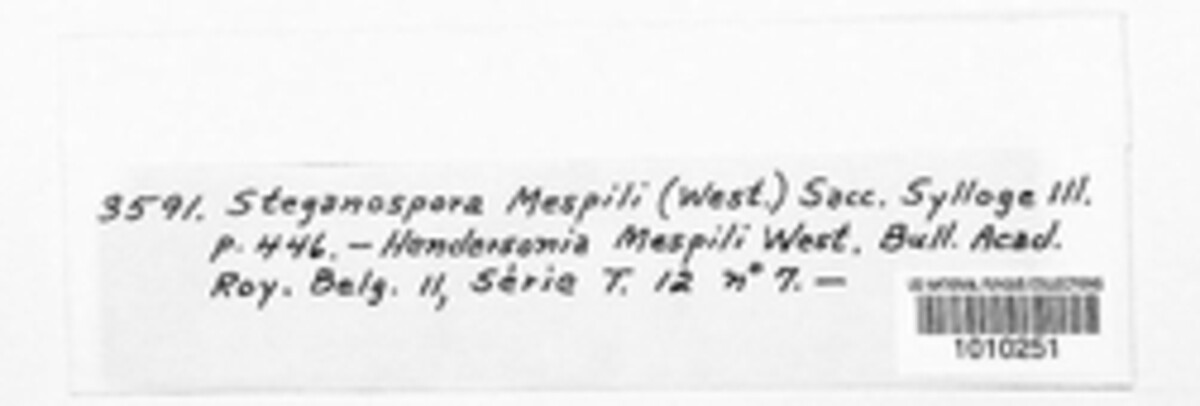 3591. Steganospora Mespili (West.) Sacc. Sylloge III.
p. 446. — Hendersonia Mespili West. Bull. Acad.
Roy. Belg. II, Série T. 12 n° 7. —
US NATIONAL FUNGUS COLLECTIONS
1010251